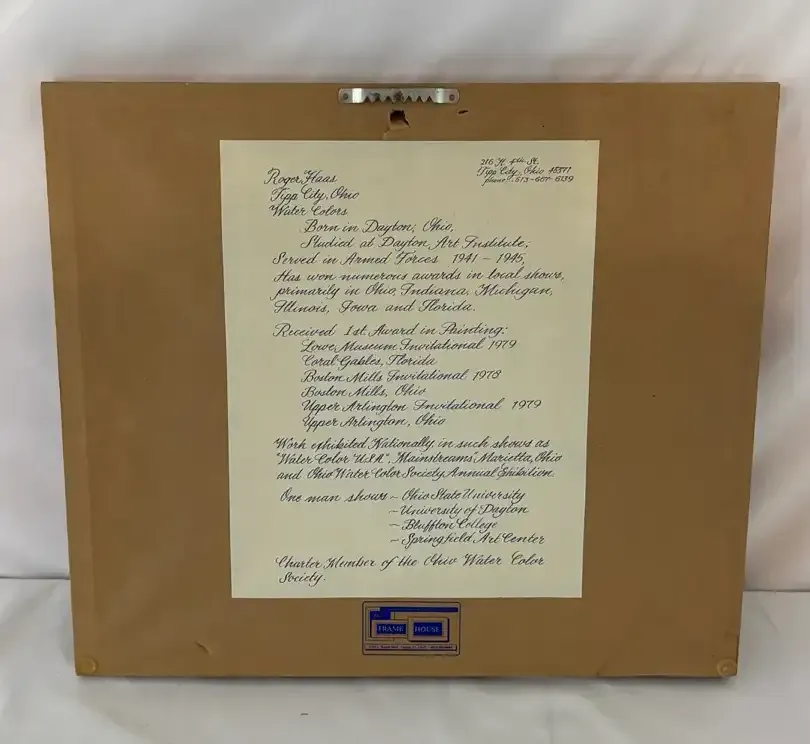 216 N. 4th St.
Tipp City, Ohio 45371
phone: 513-667-6139
Roger Haas
Tipp City, Ohio
Water Colors
Born in Dayton, Ohio,
Studied at Dayton Art Institute;
Served in Armed Forces 1941 - 1945,
Has won numerous awards in local shows,
primarily in Ohio, Indiana, Michigan,
Illinois, Iowa and Florida.
Received 1st. Award in Painting:
Lowe Museum Invitational 1979
Coral Gables, Florida
Boston Mills Invitational 1978
Boston Mills, Ohio
Upper Arlington Invitational 1979
Upper Arlington, Ohio
Work exhibited Nationally in such shows as
"Water Color U.S.A.", "Mainstreams" Marietta, Ohio
and Ohio Water Color Society Annual Exhibition.
One man shows ~ Ohio State University
~ University of Dayton
~ Bluffton College
~ Springfield Art Center
Charter Member of the Ohio Water Color
Society.
FRAME HOUSE